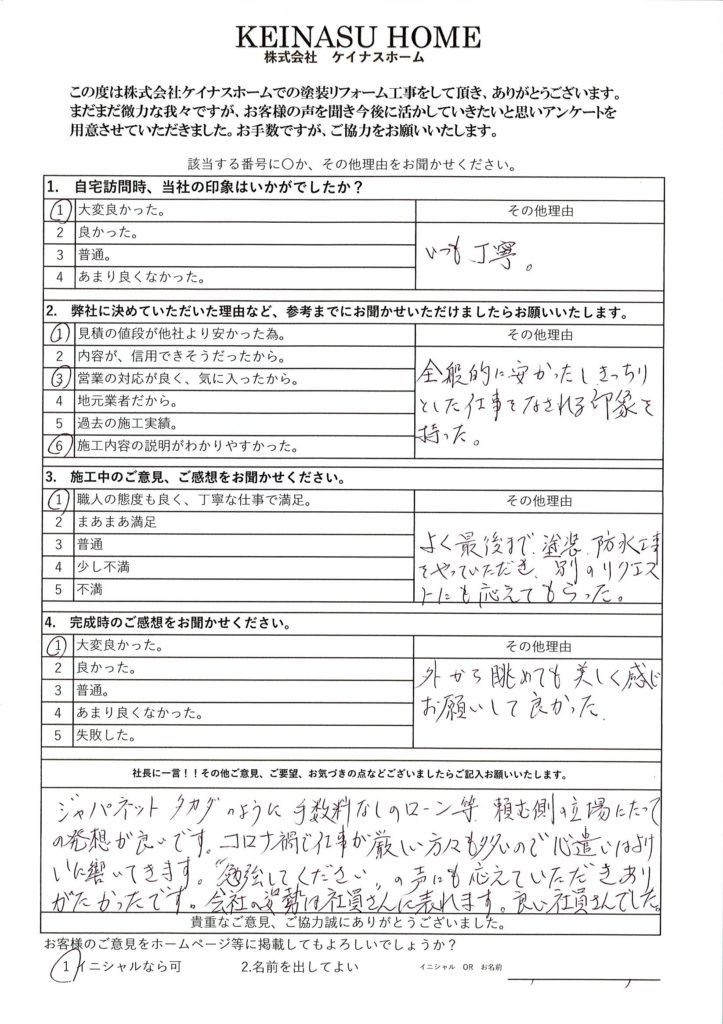 KEINASU HOME
株式会社 ケイナスホーム
この度は株式会社ケイナスホームでの塗装リフォーム工事をして頂き、ありがとうございます。
まだまだ微力な我々ですが、お客様の声を聞き今後に活かしていきたいと思いアンケートを
用意させていただきました。お手数ですが、ご協力をお願いいたします。
該当する番号に〇か、その他理由をお聞かせください。
1. 自宅訪問時、当社の印象はいかがでしたか？
1 大変良かった。
その他理由
2 良かった。
3 普通。
4 あまり良くなかった。
いつも丁寧。
2. 弊社に決めていただいた理由など、参考までにお聞かせいただけましたらお願いいたします。
1 見積の値段が他社より安かった為。
その他理由
2 内容が、信用できそうだったから。
3 営業の対応が良く、気に入ったから。
4 地元業者だから。
5 過去の施工実績。
6 施工内容の説明がわかりやすかった。
全般的に安かったし、きっちり
とした仕事をなされる印象を
持った。
3. 施工中のご意見、ご感想をお聞かせください。
1 職人の態度も良く、丁寧な仕事で満足。
その他理由
2 まあまあ満足
3 普通
4 少し不満
5 不満
よく最後まで、塗装、防水工事
をやっていただき、別のリクエス
トにも応えてもらった。
4. 完成時のご感想をお聞かせください。
1 大変良かった。
その他理由
2 良かった。
3 普通。
4 あまり良くなかった。
5 失敗した。
外から眺めても美しく感じ
お願いして良かった.
社長に一言！！その他ご意見、ご要望、お気づきの点などございましたらご記入お願いいたします。
ジャパネットタカダのように手数料なしのローン等、頼む側の立場にたって
の発想が良いです。コロナ禍で仕事が厳しい方々も多いので心遣いはよけ
いに響いてきます。"勉強してください"の声にも応えていただきあり
がたかったです。会社の姿勢は社員さんに表れます。良い社員さんでした。
貴重なご意見、ご協力誠にありがとうございました。
お客様のご意見をホームページ等に掲載してもよろしいでしょうか？
1 イニシャルなら可
2.名前を出してよい
イニシャル OR お名前